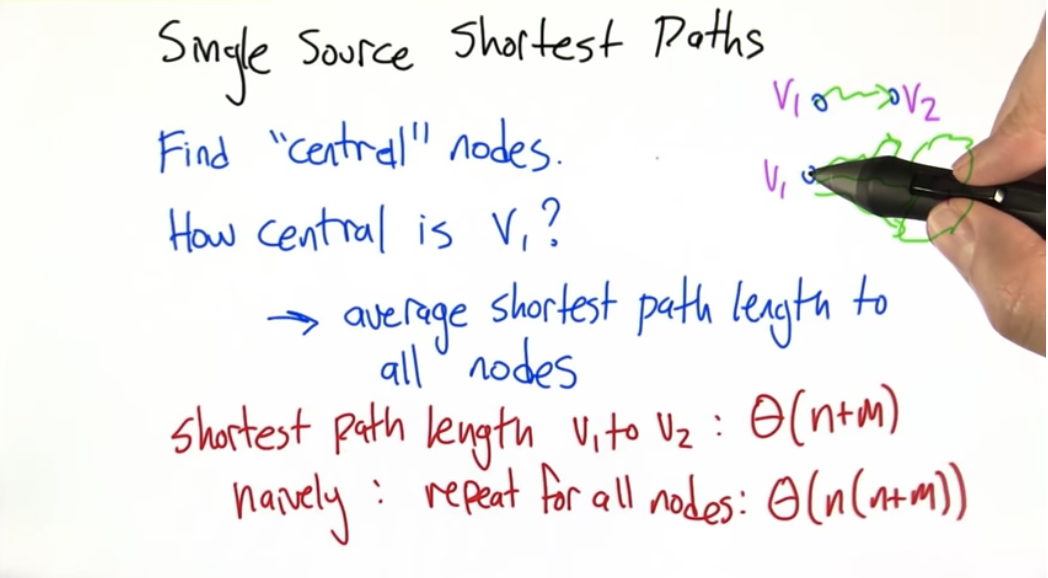 Single Source Shortest Paths
V1 V2
Find "central" nodes.
V1
How central is V1?
→ average shortest path length to
all nodes
shortest path length v1 to v2 : Θ(n+m)
naively : repeat for all nodes: Θ(n(n+m))